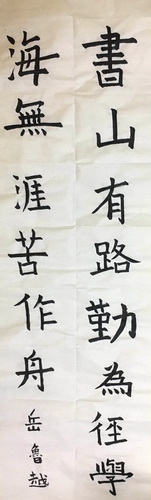 書山有路勤為徑學
海無涯苦作舟岳魯越